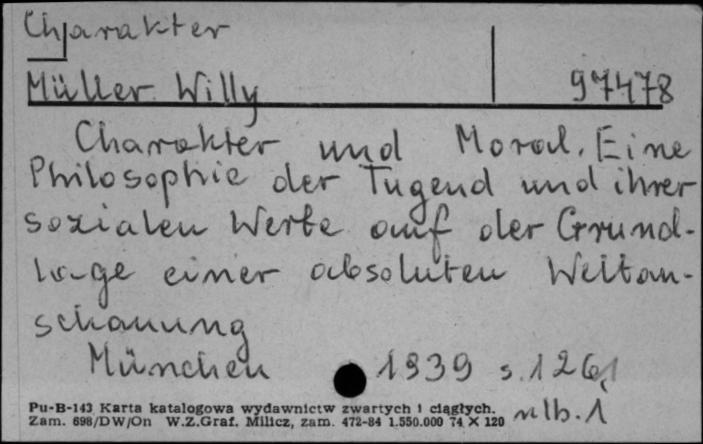 Charakter
Müller Willy 97478
Charakter und Moral. Eine
Philosophie der Tugend und ihrer
sozialen Werte auf der Grund-
lage einer absoluten Weltan-
schauung
München 1939 s. 126,1
nlb. 1
Pu-B-143 Karta katalogowa wydawnictw zwartych i ciągłych.
Zam. 698/DW/On W.Z.Graf. Milicz, zam. 472-84 1.550.000 74 X 120